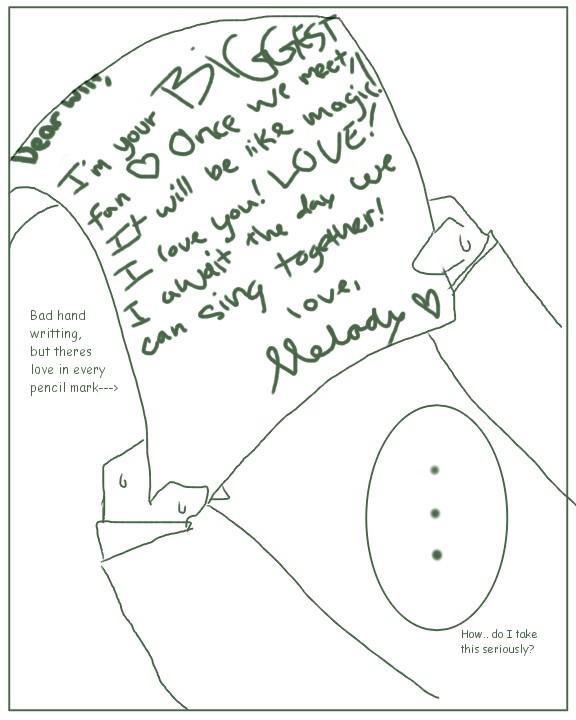 Dear Will,
I'm your BIGGEST
fan ♡ Once we meet,
It will be like magic!
I love you! LOVE!
I await the day we
can sing together!
love,
Melody ♡
Bad hand
writting,
but theres
love in every
pencil mark--->
...
How.. do I take
this seriously?